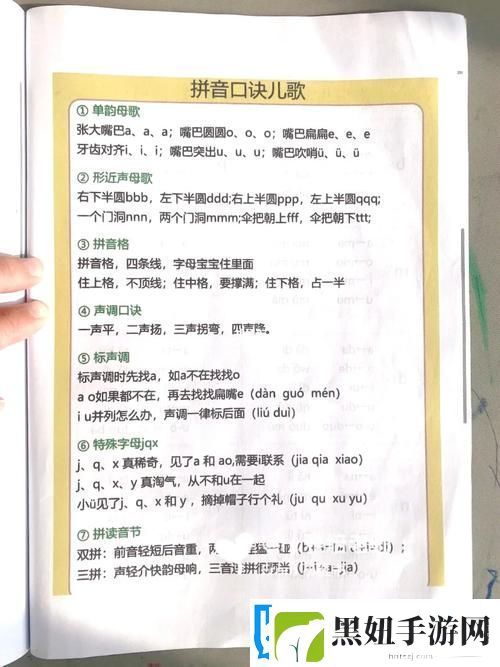 拼音口诀儿歌
① 单韵母歌
张大嘴巴a、a、a；嘴巴圆圆o、o、o；嘴巴扁扁e、e、e
牙齿对齐i、i、i；嘴巴突出u、u、u；嘴巴吹哨ü、ü、ü
② 形近声母歌
右下半圆bbb，左下半圆ddd;右上半圆ppp，左上半圆qqq;
一个门洞nnn，两个门洞mmm;伞把朝上fff，伞把朝下ttt;
③ 拼音格
拼音格，四条线，字母宝宝住里面
住上格，不顶线；住中格，要撑满；住下格，占一半
④ 声调口诀
一声平，二声扬，三声拐弯，四声降。
⑤ 标声调
标声调时先找a，如a不在找找o
a o如果都不在，再去找找扁嘴e（dàn guó mén）
i u并列怎么办，声调一律标后面（liú duì）
⑥ 特殊字母jqx
j、q、x 真稀奇，见了a 和 ao,需要i联系（jia qia xiao）
j、q、x、y 真淘气，从不和u在一起
小ü见了j、q、x 和 y ，摘掉帽子行个礼（ju qu xu yu）
⑦ 拼读音节
双拼：前音轻短后音重，两 碰
三拼：声轻介快韵母响，三音 拼很 当（j-i-a-jia）
黑妞手游网